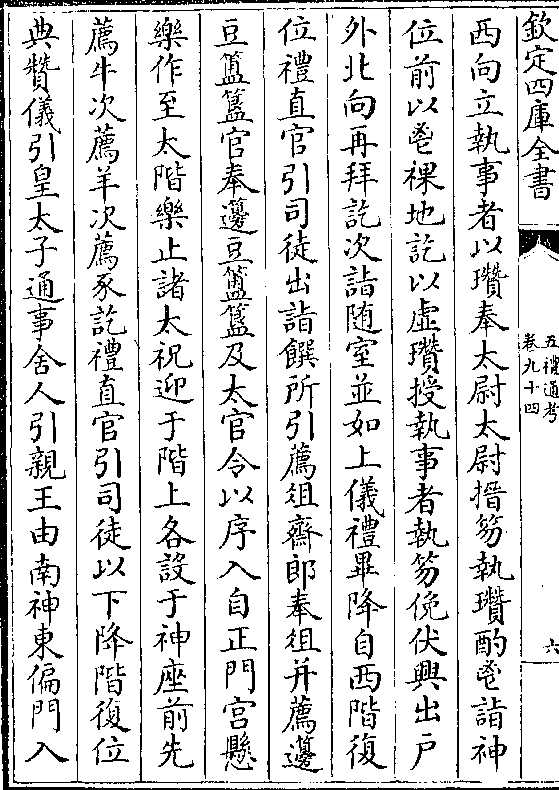 欽定四庫全書
五禮通考
卷九十四
六
西向立執事者以瓚奉太尉太尉搢笏執瓚酌鬯詣神
位前以鬯祼地訖以虛瓚授執事者執笏俛伏興出戶
外北向再拜訖次詣随室並如上儀禮畢降自西階復
位禮直官引司徒出詣饌所引薦俎齋郎奉俎并薦籩
豆簠簋官奉籩豆簠簋及太官令以序入自正門宮懸
樂作至太階樂止諸太祝迎于階上各設于神座前先
薦牛次薦羊次薦豕訖禮直官引司徒以下降階復位
典贊儀引皇太子通事舍人引親王由南神東偏門入